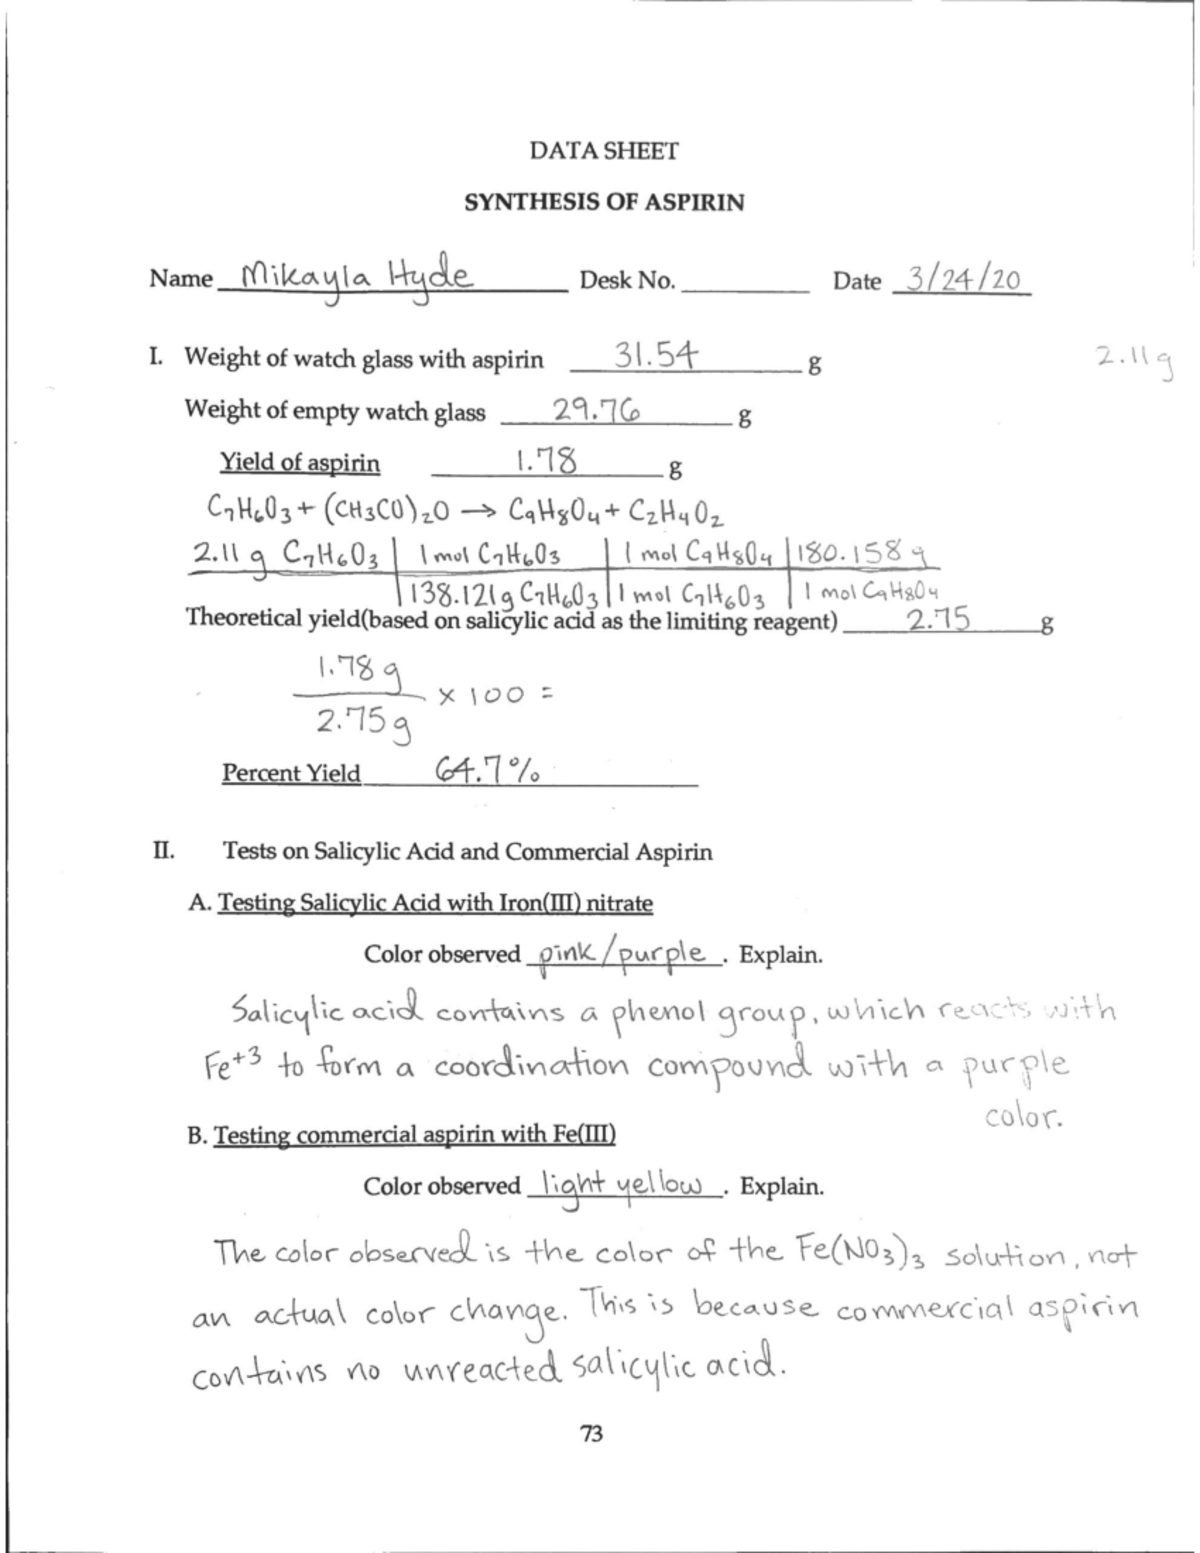 DATA SHEET
SYNTHESIS OF ASPIRIN
Name Mikayla Hyde Desk No. Date 3/24/20
I. Weight of watch glass with aspirin 31.54 g 2.11 g
Weight of empty watch glass 29.76 g
Yield of aspirin 1.78 g
C7H6O3 + (CH3CO)2O → C9H8O4 + C2H4O2
2.11 g C7H6O3 | 1 mol C7H6O3 | 1 mol C9H8O4 | 180.158 g
138.121g C7H6O3 | 1 mol C7H6O3 | 1 mol C9H8O4
Theoretical yield(based on salicylic acid as the limiting reagent) 2.75 g
1.78 g
x 100 =
2.75 g
Percent Yield 64.7%
II. Tests on Salicylic Acid and Commercial Aspirin
A. Testing Salicylic Acid with Iron(III) nitrate
Color observed pink/purple. Explain.
Salicylic acid contains a phenol group, which reacts with
Fe+3 to form a coordination compound with a purple
color.
B. Testing commercial aspirin with Fe(III)
Color observed light yellow. Explain.
The color observed is the color of the Fe(NO3)3 solution, not
an actual color change. This is because commercial aspirin
contains no unreacted salicylic acid.
73